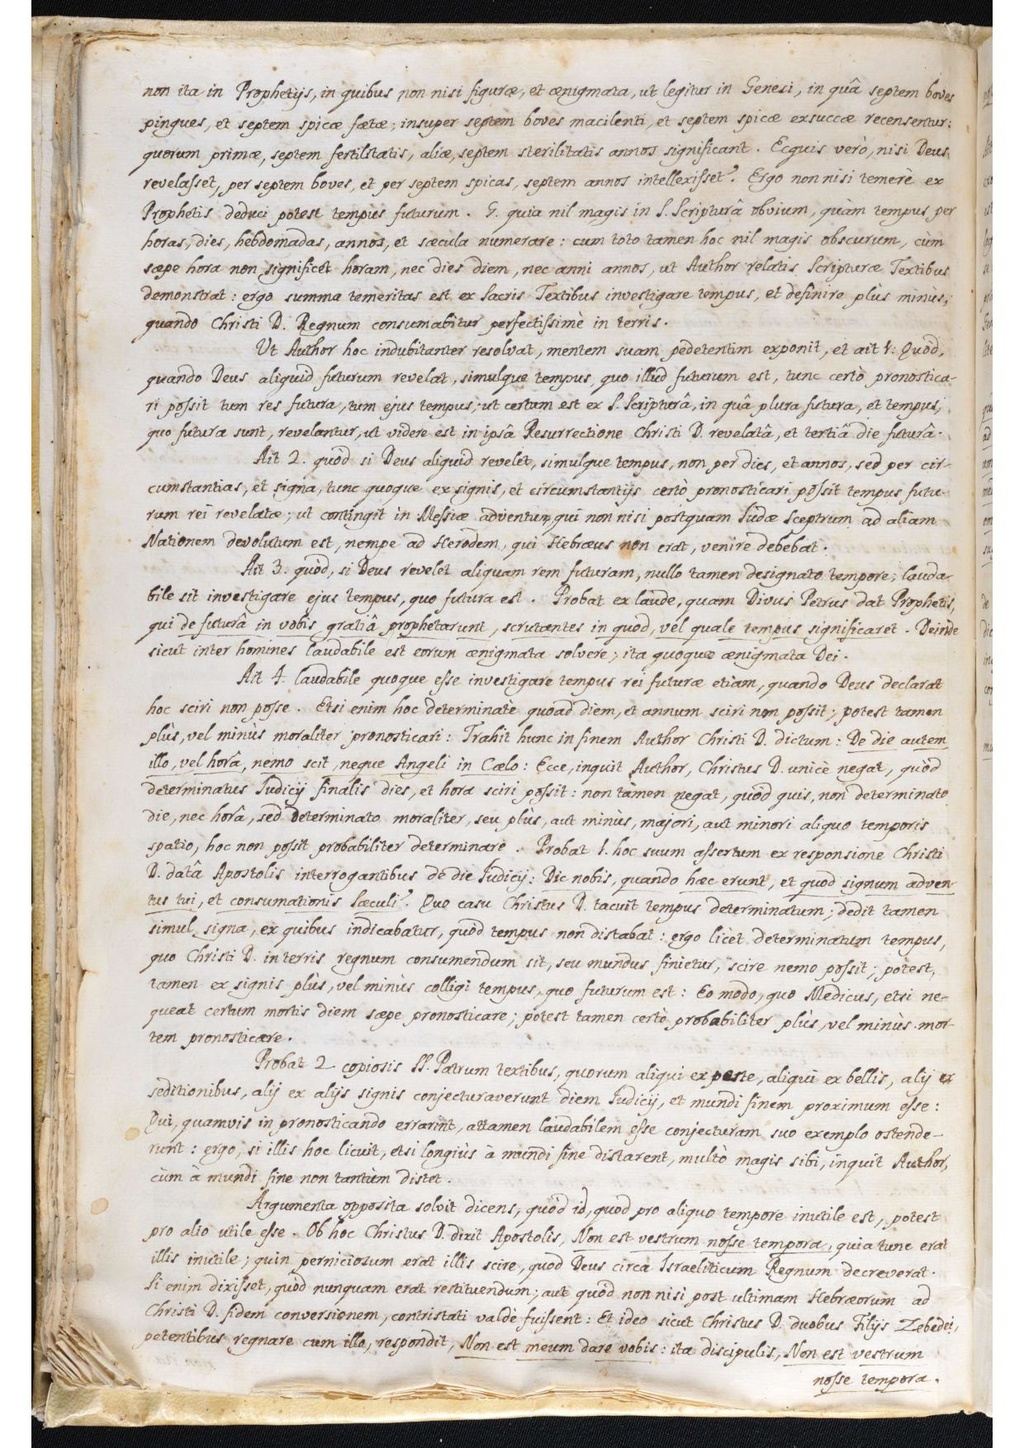 non ita in Prophetijs, in quibus non nisi figuræ, et ænigmata, ut legitur in Genesi, in quâ septem boves
pingues, et septem spicæ fætæ; insuper septem boves macilenti, et septem spicæ exsuccæ recensentur:
quorum primæ, septem fertilitatis, aliæ, septem sterilitatis annos significant. Ecquis verò, nisi Deus
revelasset, per septem boves, et per septem spicas, septem annos intellexisset? Ergo non nisi temerè ex
Prophetis deduci potest tempus futurum. 5. quia nil magis in S. Scripturâ obvium, quàm tempus per
horas, dies, hebdomadas, annos, et sæcula numerare: cum toto tamen hoc nil magis obscurum, cùm
sæpe hora non significet horam, nec dies diem, nec anni annos, ut Author relatis Scripturæ Textibus
demonstrat: ergo summa temeritas est ex Sacris Textibus investigare tempus, et definire plus minùs,
quando Christi D. Regnum consumabitur perfectissimè in terris.
Ut Author hoc indubitanter resolvat, mentem suam pedetentim exponit, et ait 1. Quòd,
quando Deus aliquid futurum revelat, simulque tempus, quo illud futurum est, tunc certò pronostica-
ri possit tum res futura, tum ejus tempus; ut certum est ex S. Scripturâ, in quâ plura futura, et tempus,
quo futura sunt, revelantur, ut videre est in ipsâ Resurrectione Christi D. revelatâ, et tertiâ die futurâ.
Ait 2. quòd si Deus aliquid revelet, simulque tempus, non per dies, et annos, sed per cir-
cumstantias, et signa, tunc quoque ex signis, et circumstantijs certò pronosticari possit tempus futu-
rum rei revelatæ; ut contingit in Messiæ adventu, qui non nisi postquam Judæ Sceptrum ad aliam
Nationem devolutum est, nempe ad Herodem, qui Hebræus non erat, venire debebat.
Ait 3. quòd, si Deus revelet aliquam rem futuram, nullo tamen designato tempore; lauda-
bile sit investigare ejus tempus, quo futura est. Probat ex laude, quam Divus Petrus dat Prophetis,
qui de futurâ in vobis gratiâ prophetarunt, scrutantes in quod, vel quale tempus significaret. Deinde
sicut inter homines laudabile est eorum ænigmata solvere; ita quoque ænigmata Dei.
Ait 4. laudabile quoque esse investigare tempus rei futuræ etiam, quando Deus declarat
hoc sciri non posse. Etsi enim hoc determinatè quoad diem, et annum sciri non possit; potest tamen
plùs, vel minùs moraliter pronosticari: Trahit hunc in finem Author Christi D. dictum: De die autem
illo, vel horâ, nemo scit, neque Angeli in Cælo: Ecce, inquit Author, Christus D. unicè negat, quòd
determinatus Judicij finalis dies, et hora sciri possit: non tamen negat, quòd quis, non determinato
die, nec horâ, sed determinato moraliter, seu plùs, aut minus, majori, aut minori aliquo temporis
spatio, hoc non possit probabiliter determinare. Probat 1. hoc suum assertum ex responsione Christi
D. datâ Apostolis interrogantibus de die Judicij: Dic nobis, quando hæc erunt, et quod signum adven-
tus tui, et consumationis sæculi? Quo casu Christus D. tacuit tempus determinatum; dedit tamen
simul signa, ex quibus indicabatur, quòd tempus non distabat: ergo licet determinatum tempus,
quo Christi D. in terris regnum consumendum sit, seu mundus finietur, scire nemo possit; potest
tamen ex signis plùs, vel minùs colligi tempus, quo futurum est: Eo modo, quo Medicus, etsi ne-
queat certum mortis diem sæpe pronosticare; potest tamen certò probabiliter plùs, vel minùs mor-
tem pronosticære.
Probat 2. copiosis SS. Patrum textibus, quorum aliqui ex peste, aliqui ex bellis, alij ex
seditionibus, alij ex alijs signis conjecturaverunt diem Judicij, et mundi finem proximum esse:
Qui, quamvis in pronosticando errarint, attamen laudabilem esse conjecturam suo exemplo ostende-
runt: ergo, si illis hoc licuit, etsi longiùs à mundi fine distarent, multò magis sibi, inquit Author,
cùm à mundi fine non tantùm distet.
Argumenta opposita solvit dicens, quòd id, quod pro aliquo tempore inutile est, potest
pro alio utile esse. Ob hoc Christus D. dixit Apostolis, Non est vestrum nosse tempora, quia tunc erat
illis inutile; quin perniciosum erat illis scire, quod Deus circà Israeliticum Regnum decreverat.
Si enim dixisset, quòd nunquam erat restituendum; aut quòd non nisi post ultimam Hebræorum ad
Christi D. fidem conversionem, contristati valdè fuissent: Et ideo sicut Christus D. duobus Filijs Zebedei,
petentibus regnare cum illo, respondit, Non est meum dare vobis: ita discipulis, Non est vestrum
nosse tempora.